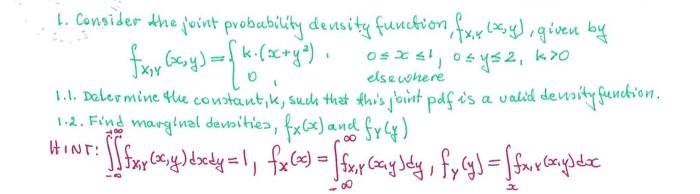 1. Consider the joint probability density function, f_{X,Y}(x,y), given by
f_{X,Y}(x,y) = { k·(x+y²), 0 ≤ x ≤ 1, 0 ≤ y ≤ 2, k>0
0, elsewhere
1.1. Determine the constant, k, such that this joint pdf is a valid density function.
1.2. Find marginal densities, f_X(x) and f_Y(y)
HINT: ∫∫_{-∞}^{+∞} f_{X,Y}(x,y)dxdy = 1, f_X(x) = ∫_{-∞}^{∞} f_{X,Y}(x,y)dy, f_Y(y) = ∫_x f_{X,Y}(x,y)dx